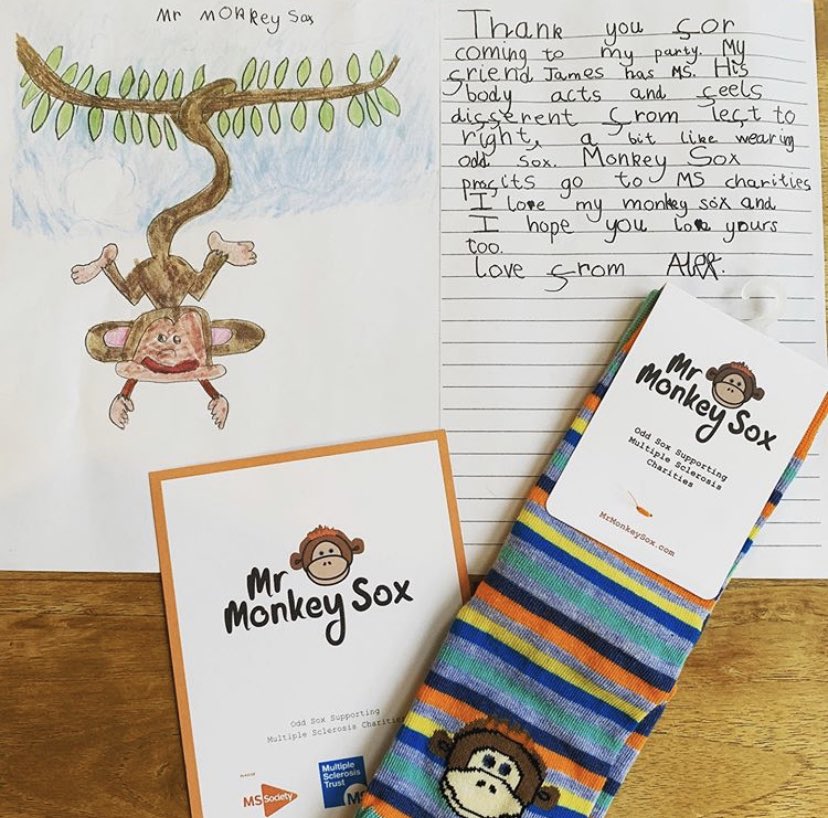 Mr MONKey Sox
Thank you for
coming to my party. My
friend James has MS. His
body acts and feels
different from left to
right, a bit like wearing
odd sox. Monkey Sox
profits go to MS charities
I love my monkey sox and
I hope you love yours
too.
Love from
Mr
Monkey Sox
Odd Sox Supporting
Multiple Sclerosis
Charities
MrMonkeySox.com
Mr
Monkey Sox
Odd Sox Supporting
Multiple Sclerosis Charities
MS Society
Multiple
Sclerosis
Trust
MS